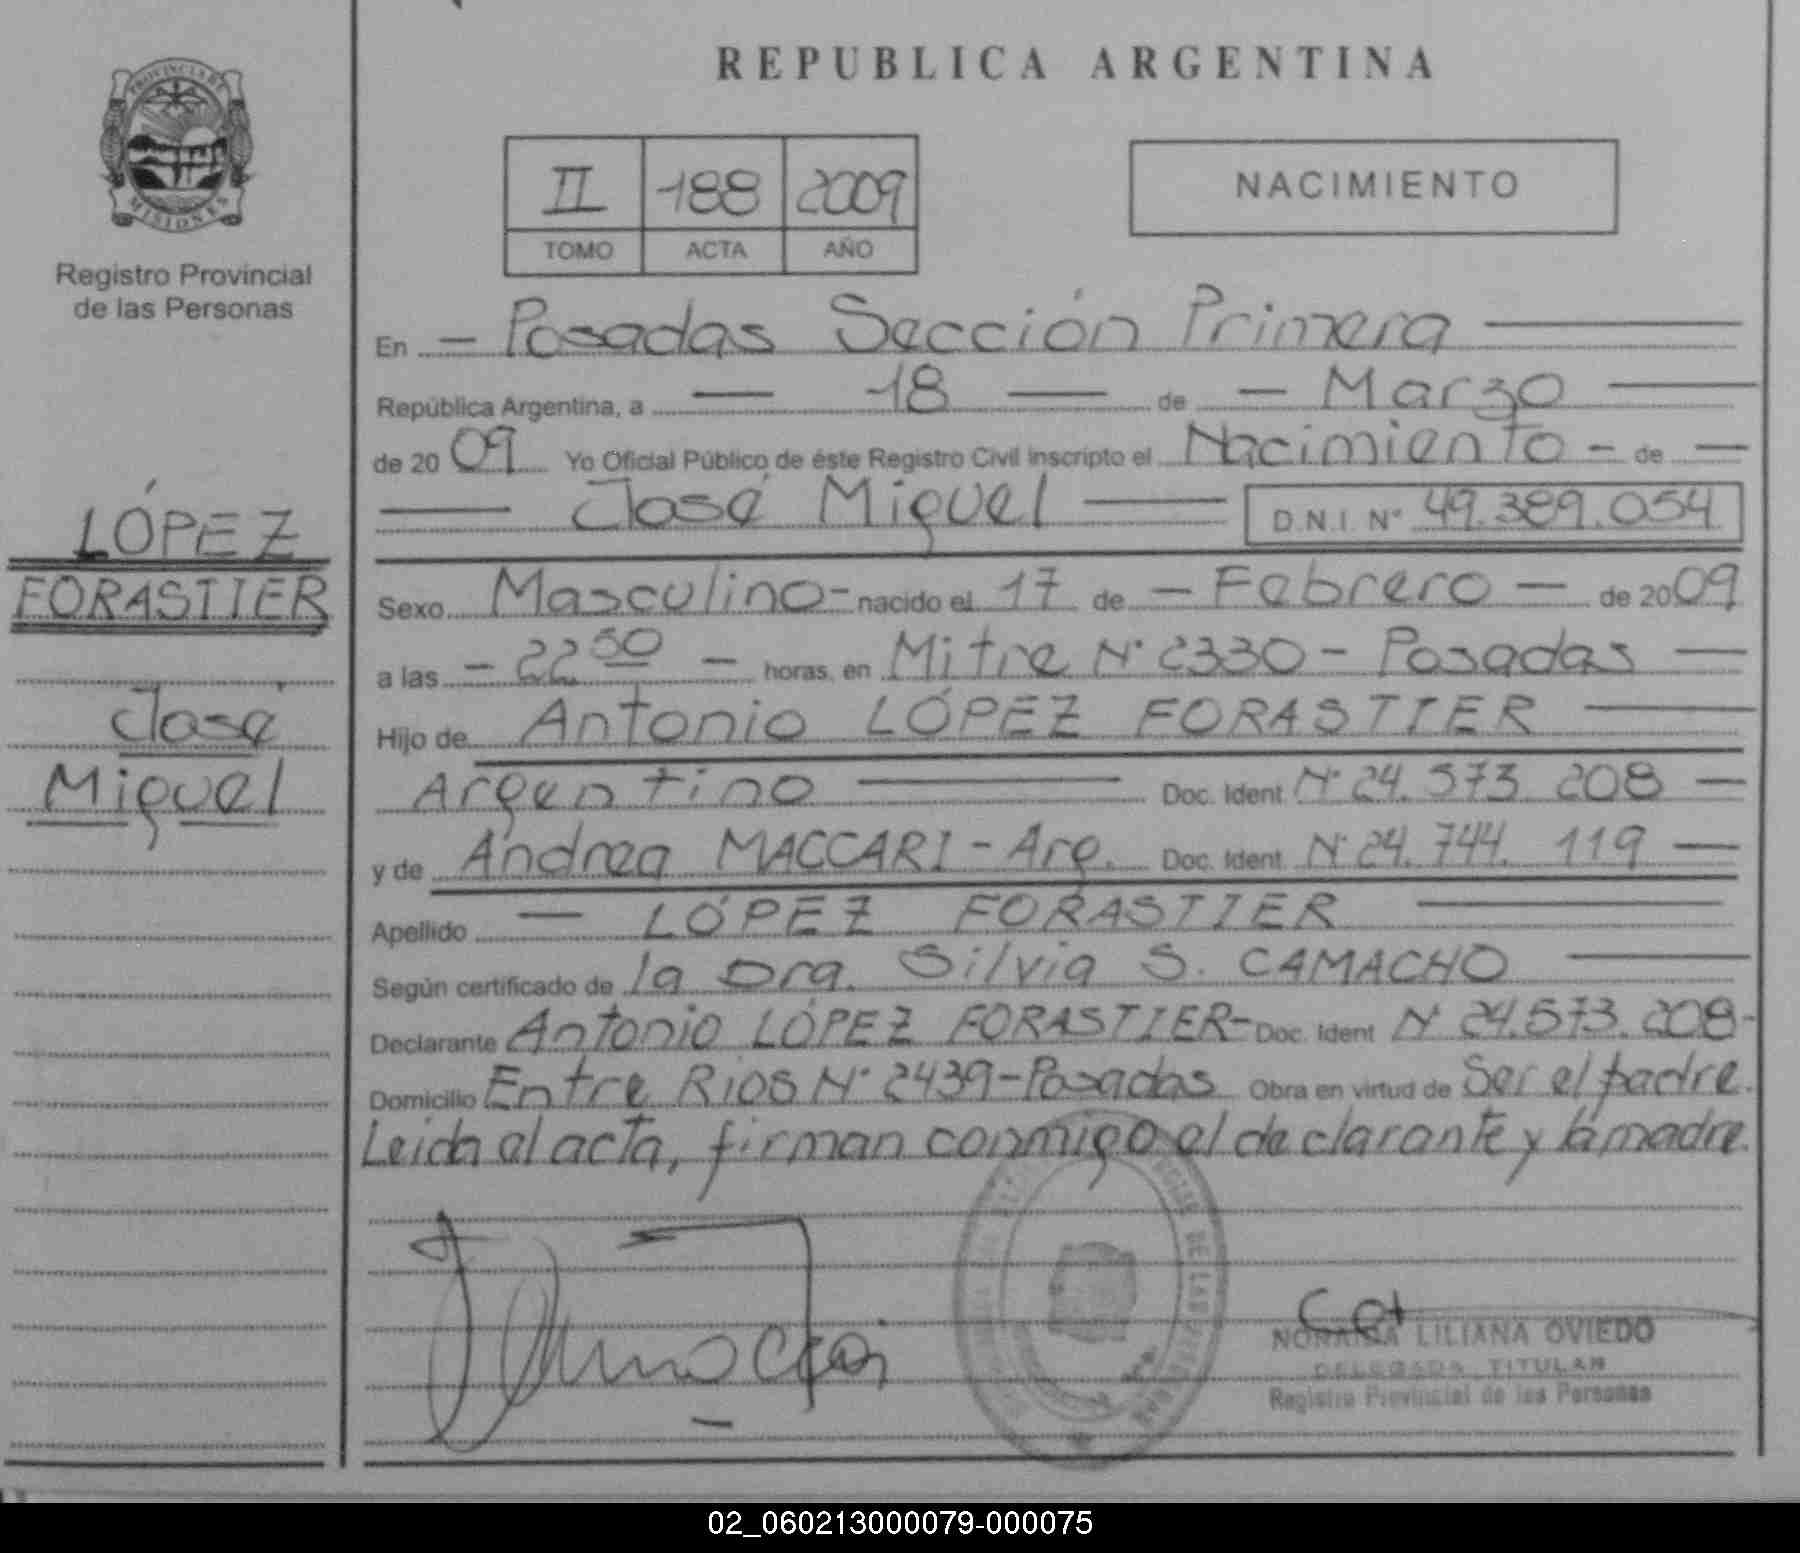 REPUBLICA ARGENTINA
PROVINCIA DE
MISIONES
Registro Provincial
de las Personas
II 188 2009
TOMO ACTA AÑO
NACIMIENTO
LÓPEZ
FORASTIER
José
Miguel
En - Posadas Sección Primera
República Argentina, a 18 de - Marzo
de 2009 Yo Oficial Público de éste Registro Civil inscripto el Nacimiento - de -
José Miguel D.N.I. N° 49.389.054
Sexo Masculino - nacido el 17 de - Febrero - de 2009
a las - 22 50 - horas, en Mitre N° 2330 - Posadas
Hijo de Antonio LÓPEZ FORASTIER
Argentino Doc. Ident N° 24.573.208
y de Andrea MACCARI - Arg. Doc. Ident. N° 24.744.119
Apellido - LÓPEZ FORASTIER
Según certificado de la Dra. Silvia S. CAMACHO
Declarante Antonio LÓPEZ FORASTIER - Doc. Ident N° 24.573.208 -
Domicilio Entre Rios N° 2439 - Posadas Obra en virtud de Ser el padre.
Leida el acta, firman conmigo el declarante y la madre.
LILIANA OVIEDO
DELEGADA TITULAR
Registro Provincial de las Personas
02_060213000079-000075